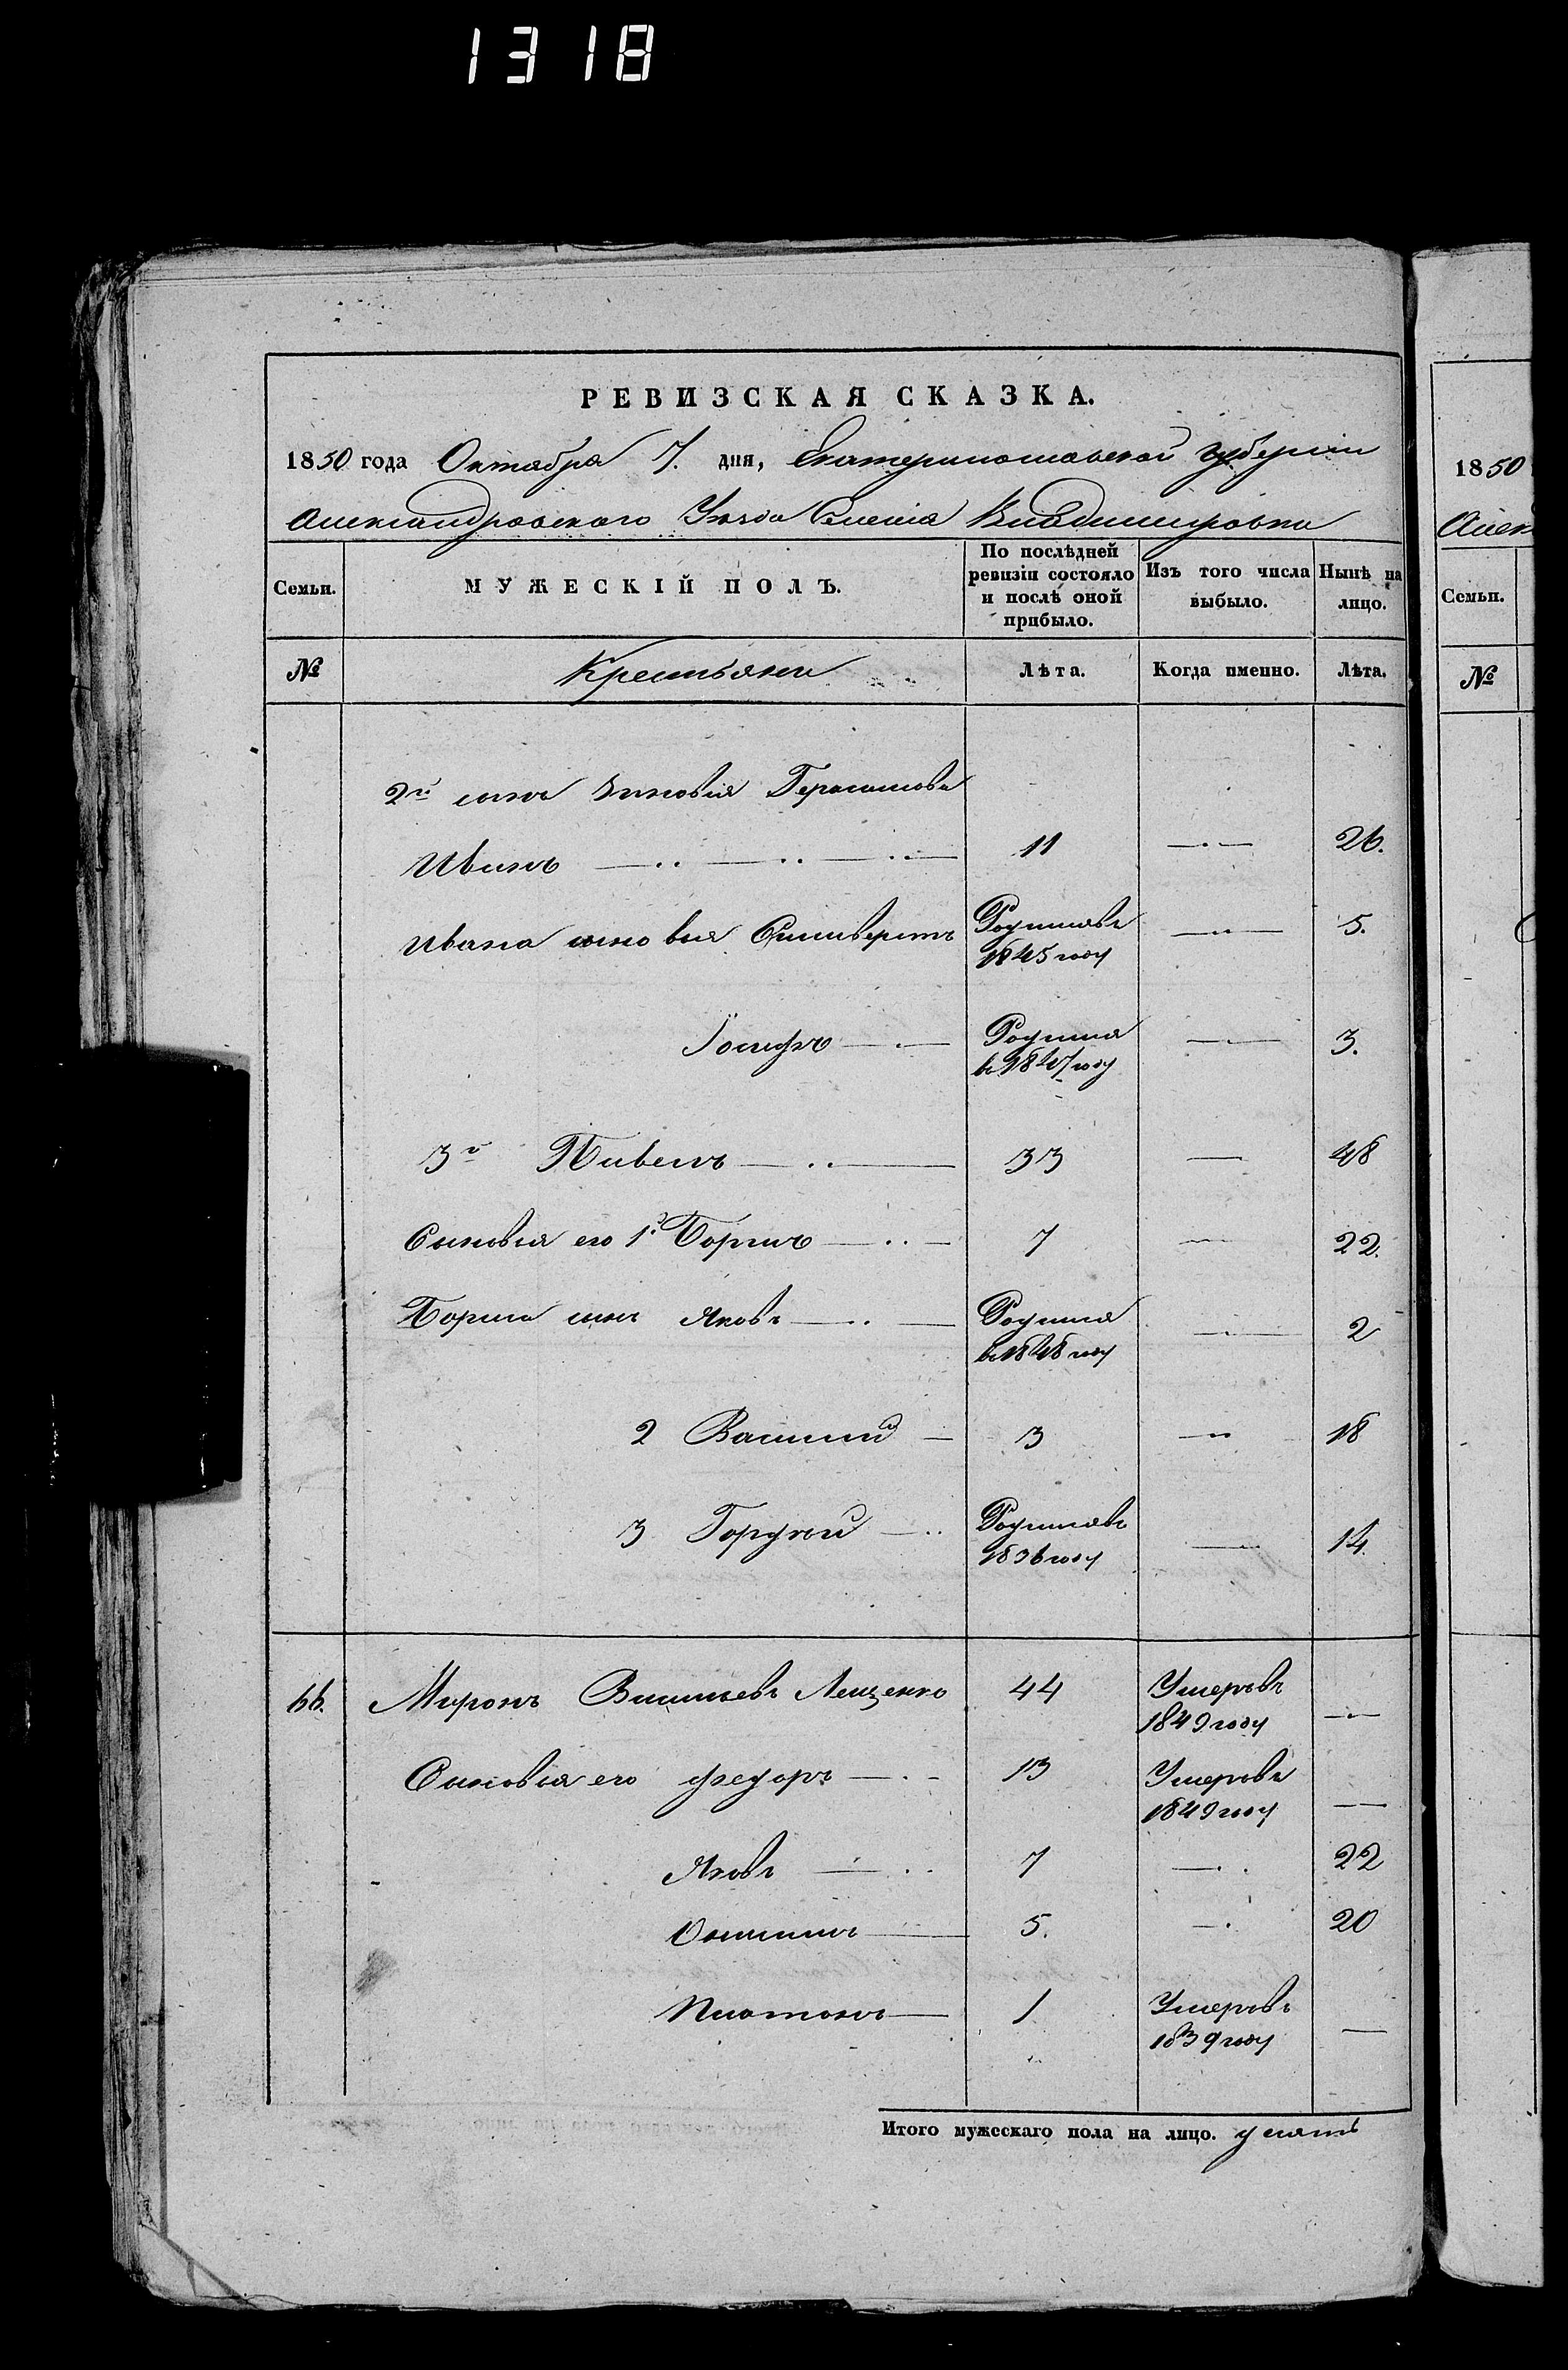 1318
РЕВИЗСКАЯ СКАЗКА.
1850 года Октября 7. дня, Екатеринославской губерніи
Александровскаго Уѣзда Селенія Владимировки
Семьи. МУЖЕСКІЙ ПОЛЪ. По послѣдней ревизіи состояло и послѣ оной прибыло. Изъ того числа выбыло. Нынѣ на лицо.
№ Крестьяни Лѣта. Когда именно. Лѣта.
2й сынъ Зиновія Герасимова
Иванъ 11 26.
Ивана сыновья Силиверстъ Родился въ 1845 году 5.
Іосифъ Родился въ 1847 году 3.
3й Павелъ 33 48
Сыновья его 1й Борисъ 7 22.
Бориса сынъ Яковъ Родился въ 1848 году 2
2 Василий 3 18
3 Гордѣй Родился въ 1836 году 14.
66. Миронъ Васильевъ Лещенко 44 Умеръ въ 1849 году
Сыновья его Федоръ 13 Умеръ въ 1849 году
Яковъ 7 22
Онисимъ 5. 20
Платонъ 1 Умеръ въ 1839 году
Итого мужескаго пола на лицо.
1850
Алек
Семьи.
№